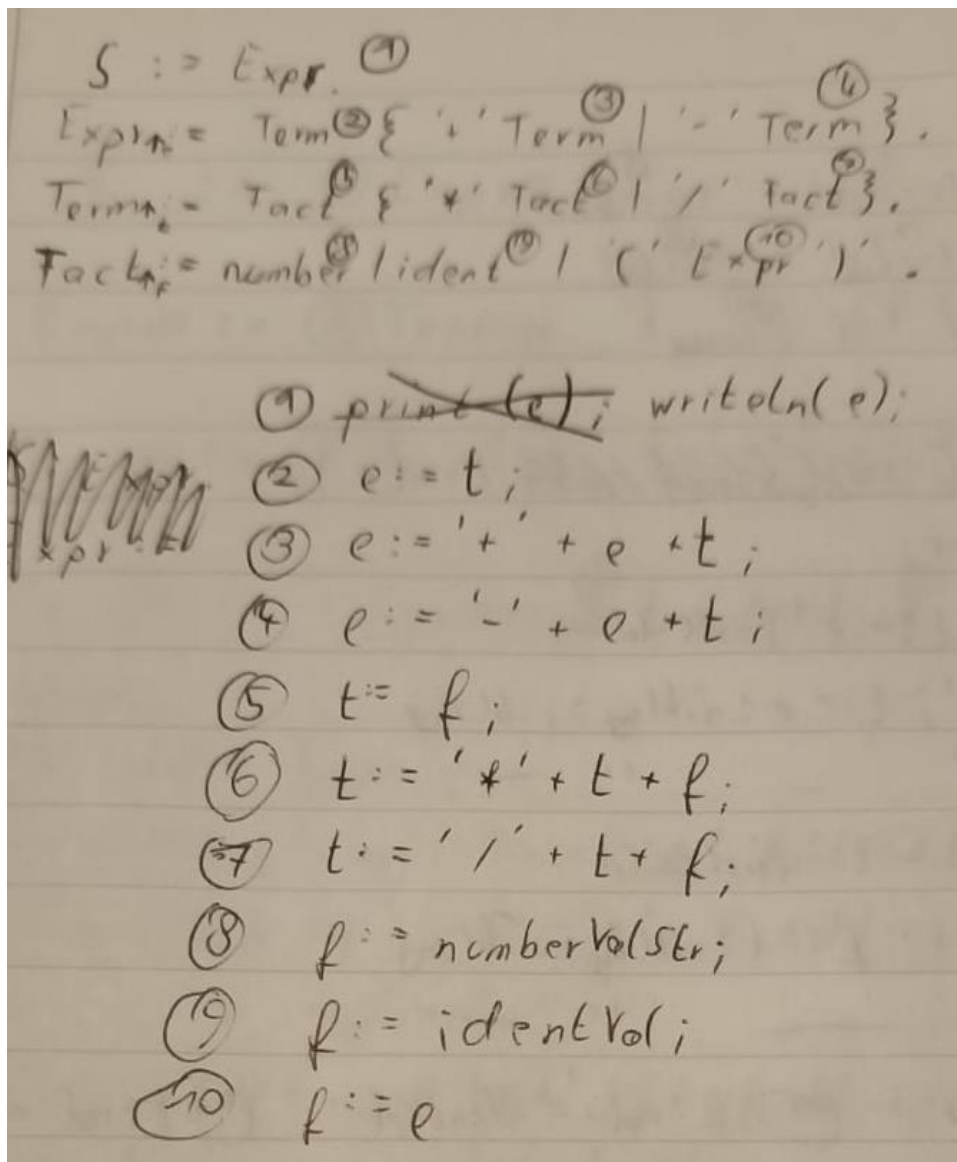 S := Expr. ①
Expr↑e = Term ② { '+' Term ③ | '-' Term ④ }.
Term↑t = Fact ⑤ { '*' Fact ⑥ | '/' Fact ⑦ }.
Fact↑f = number ⑧ | ident ⑨ | '(' Expr ⑩ ')' .
① print(e); writeln(e);
② e := t ;
③ e := '+' + e + t ;
④ e := '-' + e + t ;
⑤ t := f ;
⑥ t := '*' + t + f ;
⑦ t := '/' + t + f ;
⑧ f := numberValStr ;
⑨ f := identVal ;
⑩ f := e